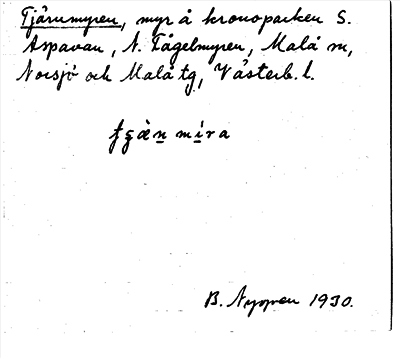 Tjärnmyren, myr å kronoparken S.
Aspavan, N. Fågelmyren, Malå sn,
Norsjö och Malå tg, Västerb. l.
B. Nygren 1930.